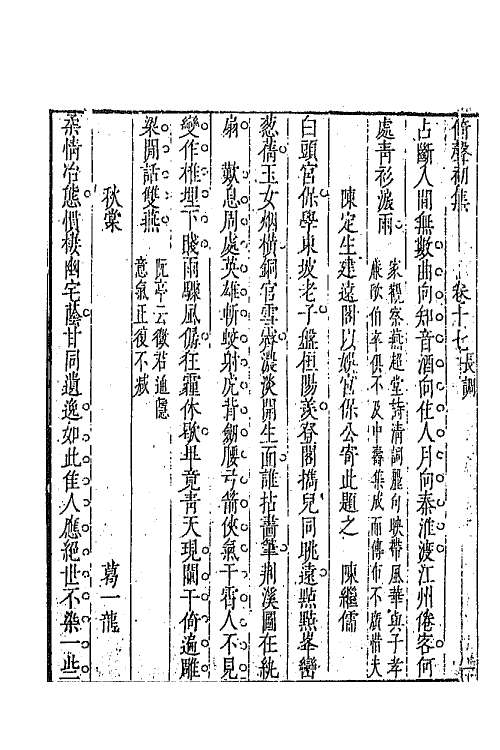 倚聲初集　卷十七長調
占斷人間無數曲向知音酒向佳人月向秦淮渡江州倦客何
處靑衫濺雨
家觀察燕超堂詩淸詞麗句映帶風華與子孝
嚴欧伯辛俱不及中壽集成而傳布不廣惜夫
陳定生建遠閣以娛宮保公寄此題之　陳繼儒
白頭宮保學東坡老子盤但陽羨登閣携兒同眺遠點點峯巒
葱蒨玉女烟橫銅官雪霽濃淡開生面誰拈畵筆荆溪圖在紈
扇　歎息周處英雄斬蛟射虎背劒腰弓箭俠氣干霄人不見
變作椎埋下賤雨驟風僝狂霾休欺畢竟靑天現闌干倚遍雕
梁閒話雙燕
阮亭云徵君通隱
意氣正復不减
秋棠　葛一龍
柔情冶態慣棲幽宅蔭甘同遺逸如此佳人應絕世不染一些